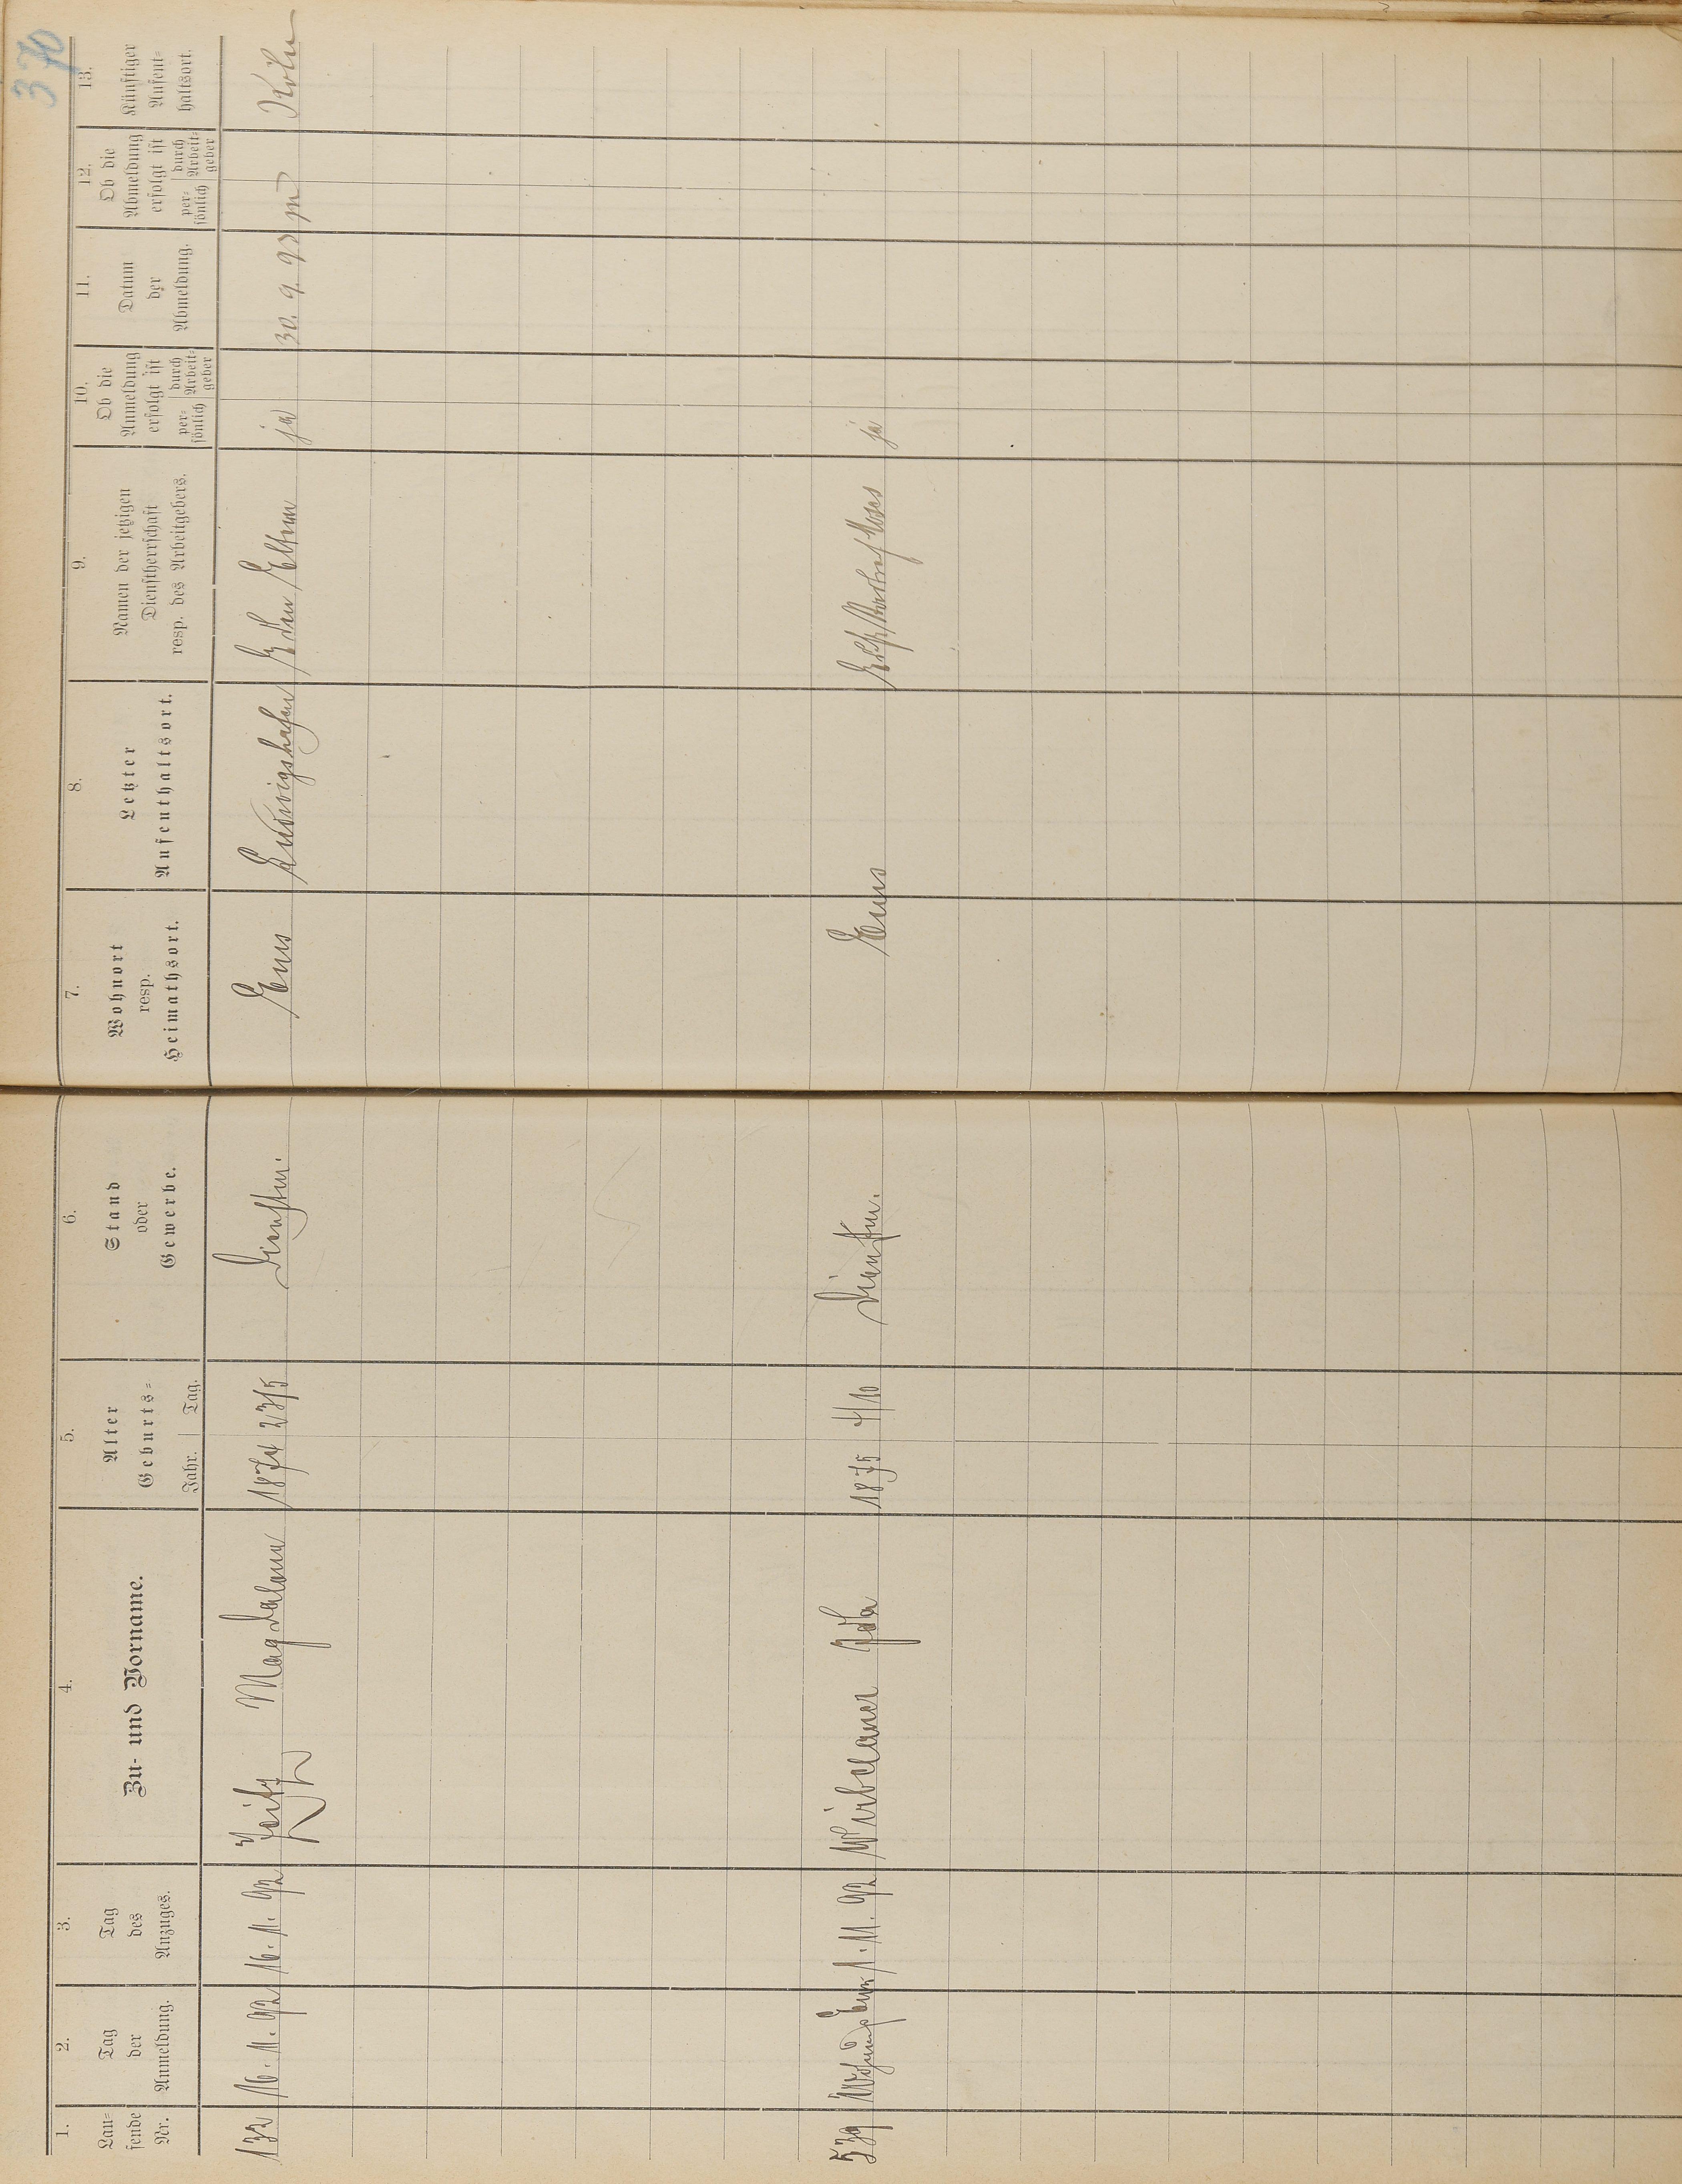 370
1.
Lau-
fende
Nr.
2.
Tag
der
Anmeldung.
3.
Tag
des
Anzuges.
4.
Zu- und Vorname.
5.
Alter
Geburts-
Jahr. Tag.
6.
Stand
oder
Gewerbe.
7.
Wohnort
resp.
Heimathsort.
8.
Letzter
Aufenthaltsort.
9.
Namen der jetzigen
Dienstherrschaft
resp. des Arbeitgebers.
10.
Ob die
Anmeldung
erfolgt ist
per-
sönlich
durch
Arbeit-
geber
11.
Datum
der
Abmeldung.
12.
Ob die
Abmeldung
erfolgt ist
per-
sönlich
durch
Arbeit-
geber
13.
Künftiger
Aufent-
haltsort.
132 16. 11. 92 16. 11. 92 Magdalena 1874 23/5 Dienstm. Ems Ludwigshafen ja 30. 9. 93 Köln
539 1. 11. 92 Wirbelauer 1875 4/10 Dienstm. Ems ja